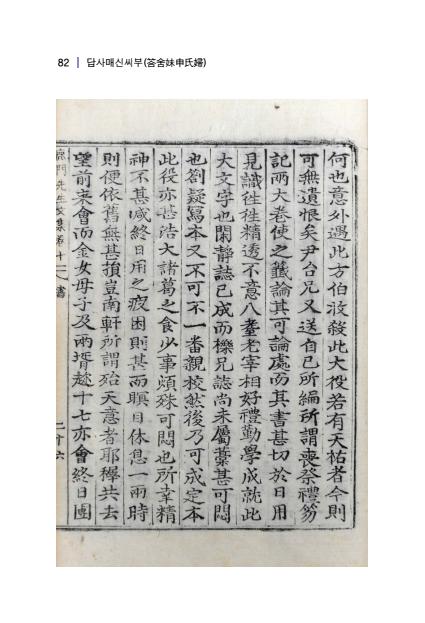 82 | 답사매신씨부(答舍妹申氏婦)
何也意外遇此方伯汝發此大役若有天祐者今則
可無遺恨矣尹台兄又送自己所編所謂喪祭禮笏
記兩大卷使之籤論其可論處而其書甚切於日用
見識往往精透不意八耋老宰相好禮勤學成就此
大文字也閑靜誌已成而櫟兄誌尚未屬藁甚可悶
也劄疑寫本又不可不一番親校然後乃可成定本
此役亦甚浩大諸葛之食少事煩殊可悶也所幸精
神不甚减終日用之疲困則甚而瞑目休息一兩時
則便依舊無甚損豈南軒所謂殆天意者耶稺共去
望前来會而金女母子及兩壻趂十七亦會終日團
鹿門先生文集卷十一 書
二十六